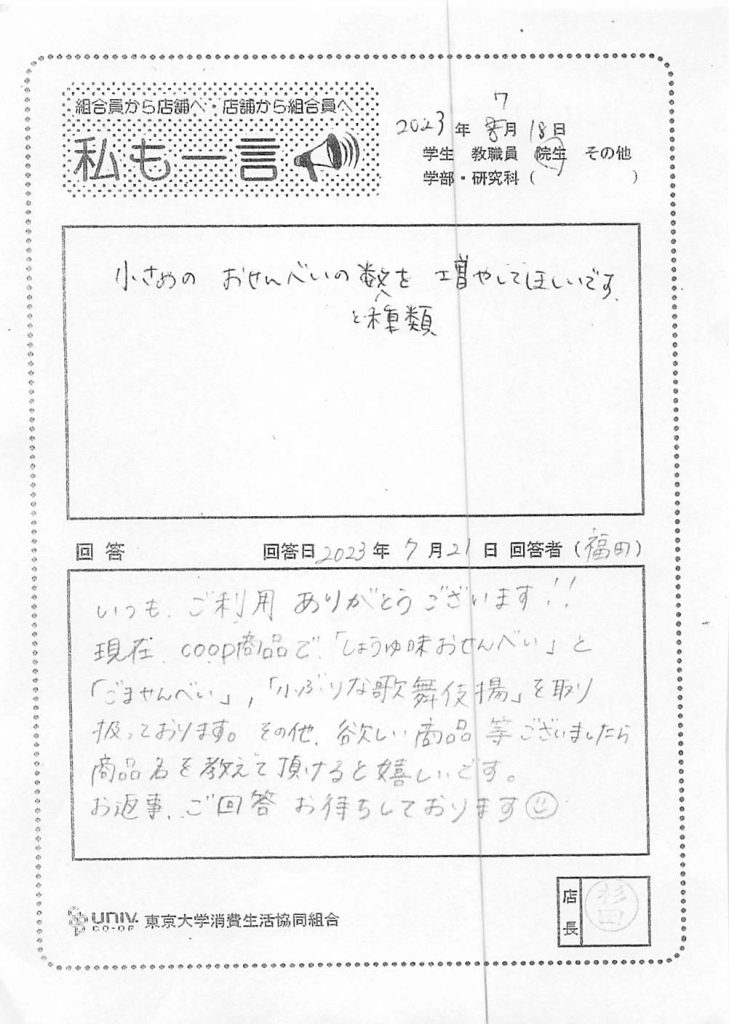 組合員から店舗へ・店舗から組合員へ
私も一言
7
2023 年 8月 18日
学生 教職員 院生 その他
学部・研究科 ( )
小さめの おせんべいの数を 増やしてほしいです、
と種類
回 答 回答日2023年 7 月 21 日 回答者 (福田)
いつも、ご利用 ありがとうございます!!
現在、coop商品で、「しょうゆ味おせんべい」と
「ごませんべい」,「小ぶりな歌舞伎揚」を取り
扱っております。その他、欲しい商品 等ございましたら
商品名を教えて頂けると嬉しいです。
お返事、ご回答 お待ちしております
UNIV. 東京大学消費生活協同組合
CO-OP
店長
杉田